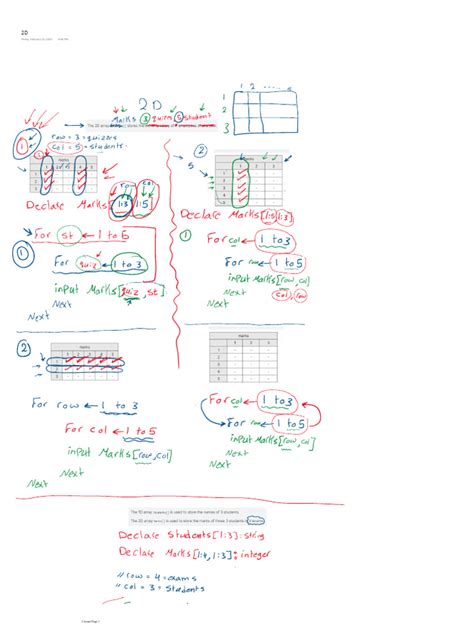 2D
2D
1 2
1
2
3
Marks 3 quizzes 5 student
The 2D array
row = 3 = quizzes
col = 5 = students
1
2
marks
marks
5
row col
Declare Marks [1:3, 1:5]
Declare Marks [1:5, 1:3]
For st ← 1 to 5
1
For quiz ← 1 to 3
input Marks [quiz, st]
Next
Next
1
For col ← 1 to 3
For row ← 1 to 5
input Marks [row, col]
Next
col, row
Next
2
marks
For row ← 1 to 3
For col ← 1 to 5
input Marks [row, col]
Next
Next
marks
For col ← 1 to 3
For row ← 1 to 5
input Marks [row, col]
Next
Next
The 1D array Students[] is used to store the names of 3 students.
The 2D array Marks[] is used to store the marks of these 3 students
Declare Students [1:3] : string
Declare Marks [1:4, 1:3] : integer
// row = 4 = exams
// col = 3 = students